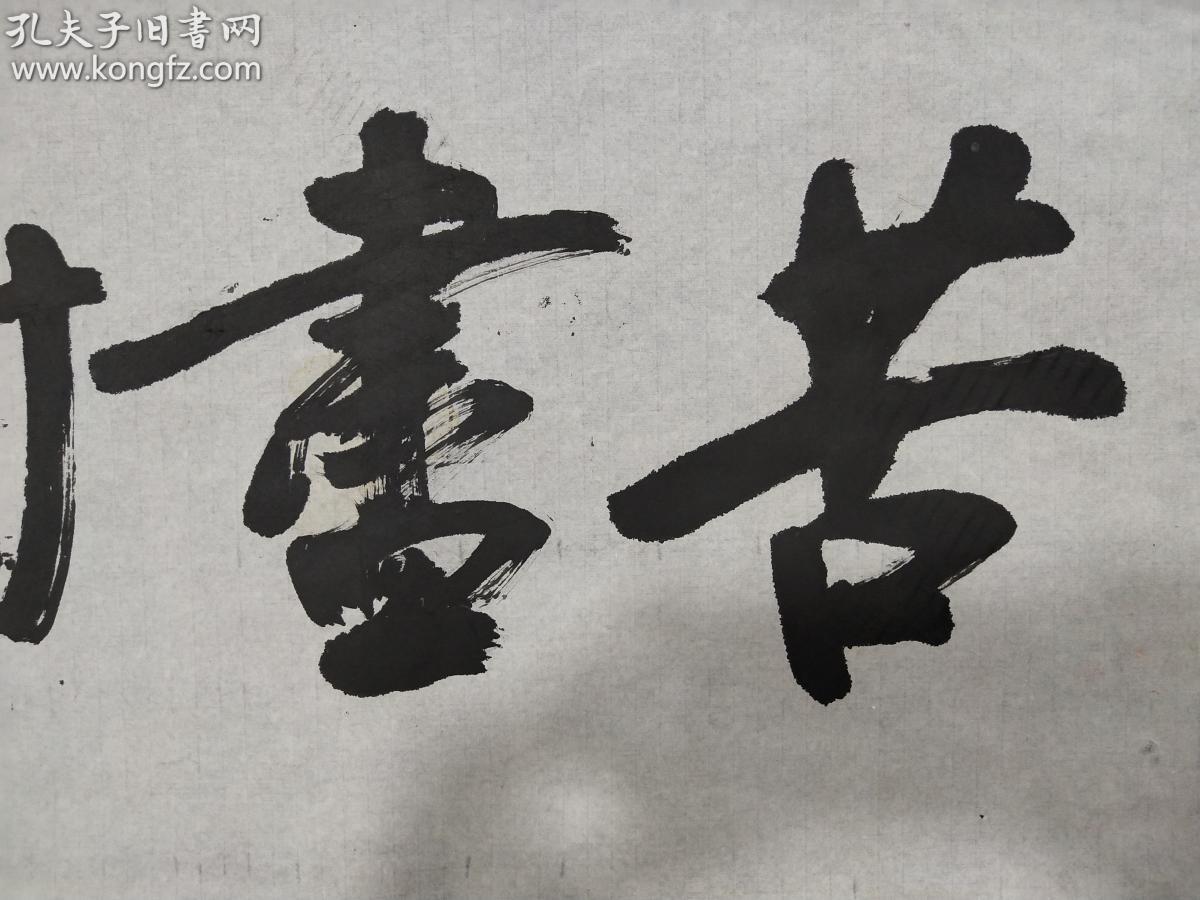 孔夫子旧書网
www.kongfz.com
苦盡